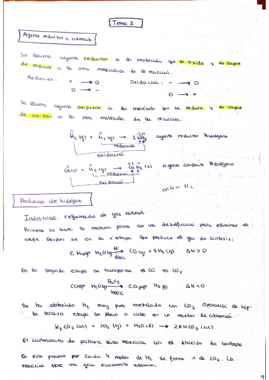 Tema 2
Agente reductor y oxidante
Se llama agente reductor a la molécula que se oxida y es capaz
de reducir a la otra molécula de la reacción.
Reducción: + → 0 Oxidación: - → 0
0 → - 0 → +
Se llama agente oxidante a la molécula que se reduce y es capaz
de oxidar a la otra molécula de la reacción.
H₂ (g) + N₂ (g) → 2 NH₃ (g) agente reductor hidrógeno
reducción
oxidación
(g) agente oxidante hidrógeno
reducción
oxidación
Producción de hidrógeno
Industrial: reformado de gas natural
Primero se trata la materia prima con una desulfuración para eliminar el
azufre. Después se da la 1ª etapa que produce el gas de síntesis:
CH₄(g) + H₂O(g) → CO(g) + 3H₂(g) ΔH>0
En la segunda etapa se transforma el CO en CO₂
CO(g) + H₂O(g) → CO₂(g) + H₂(g) ΔH<0
Se ha obtenido H₂ muy puro mezclado con CO₂
la tercera etapa se lleva a cabo en un reactor de absorción.
K₂CO₃ (ac) + CO₂ (g) + H₂O (l) → 2KHCO₃ (ac)
El carbonato de potasio sólo reacciona con el dióxido de carbono
En este proceso por cada 4 moles de H₂ se forma 1 de CO₂. La
reacción tiene una gran economía atómica.